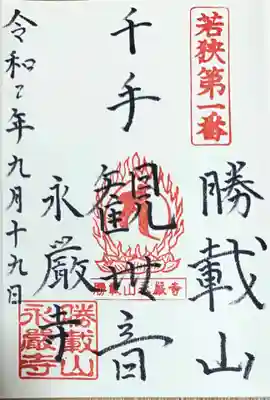 若狭第一番
勝載山
千手觀世音
永嚴寺
令和 年九月十九日
勝載山永嚴寺
勝載山
永嚴寺